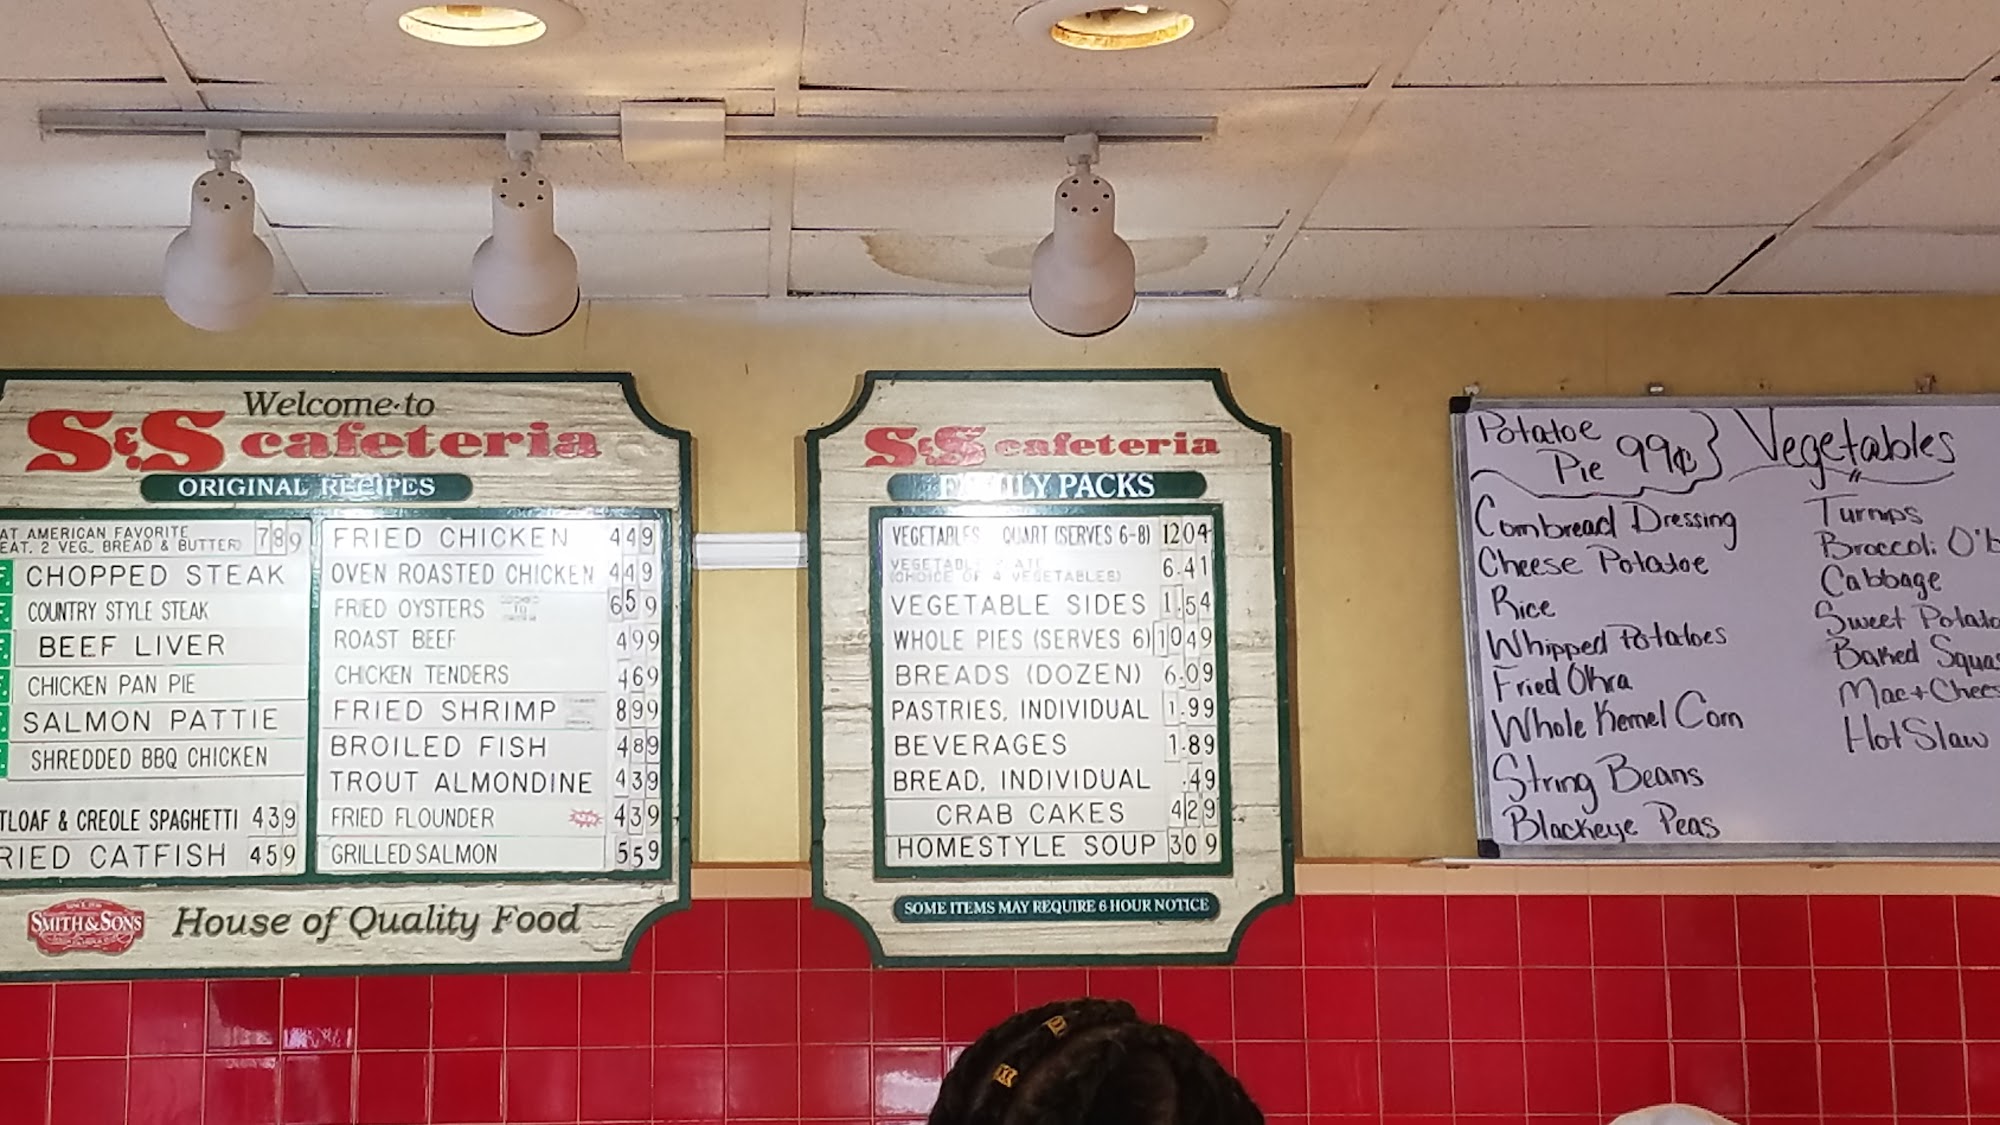 Welcome to
S&S cafeteria
ORIGINAL RECIPES
AT AMERICAN FAVORITE
EAT, 2 VEG., BREAD & BUTTER) 789
CHOPPED STEAK
COUNTRY STYLE STEAK
BEEF LIVER
CHICKEN PAN PIE
SALMON PATTIE
SHREDDED BBQ CHICKEN
TLOAF & CREOLE SPAGHETTI 439
RIED CATFISH 459
FRIED CHICKEN 449
OVEN ROASTED CHICKEN 449
FRIED OYSTERS 659
ROAST BEEF 499
CHICKEN TENDERS 469
FRIED SHRIMP 899
BROILED FISH 489
TROUT ALMONDINE 439
FRIED FLOUNDER 439
GRILLED SALMON 559
SMITH & SONS
House of Quality Food
S&S cafeteria
FAMILY PACKS
VEGETABLES QUART (SERVES 6-8) 1204
(CHOICE OF 4 VEGETABLES) 6.41
VEGETABLE SIDES 1.54
WHOLE PIES (SERVES 6) 1049
BREADS (DOZEN) 6.09
PASTRIES, INDIVIDUAL 1.99
BEVERAGES 1.89
BREAD, INDIVIDUAL .49
CRAB CAKES 429
HOMESTYLE SOUP 309
SOME ITEMS MAY REQUIRE 6 HOUR NOTICE
Potatoe
Pie 99¢
Vegetables
Cornbread Dressing
Cheese Potatoe
Rice
Whipped Potatoes
Fried Okra
Whole Kernel Corn
String Beans
Blackeye Peas
Turnips
Broccoli O'b
Cabbage
Sweet Potato
Baked Squas
Mac + Chees
Hot Slaw